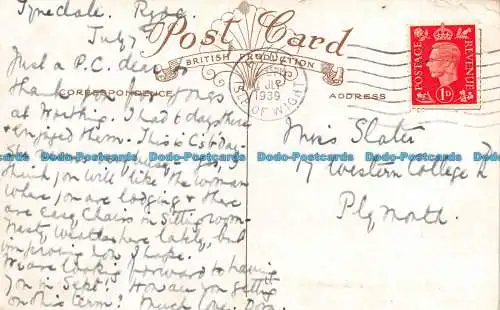 Tynedale. Ryde
July 7
Post Card
BRITISH PRODUCTION
CORRESPONDENCE
ADDRESS
Just a P.C. dear to
thank you for yours
at Worthing. I had 6 days there
& enjoyed them. This is Cist. day.
think you will like the woman
where you are lodging & there
are easy chairs in sitting room.
Nasty weather here lately, but
improving now I hope.
We are looking forward to having
you in Sept! How are you getting
on this term? Much love. Dora.
1939
ISLE OF WIGHT
POSTAGE
REVENUE
1D
Miss Slater
17 Western College Rd
Plymouth
bidStart
bidStart